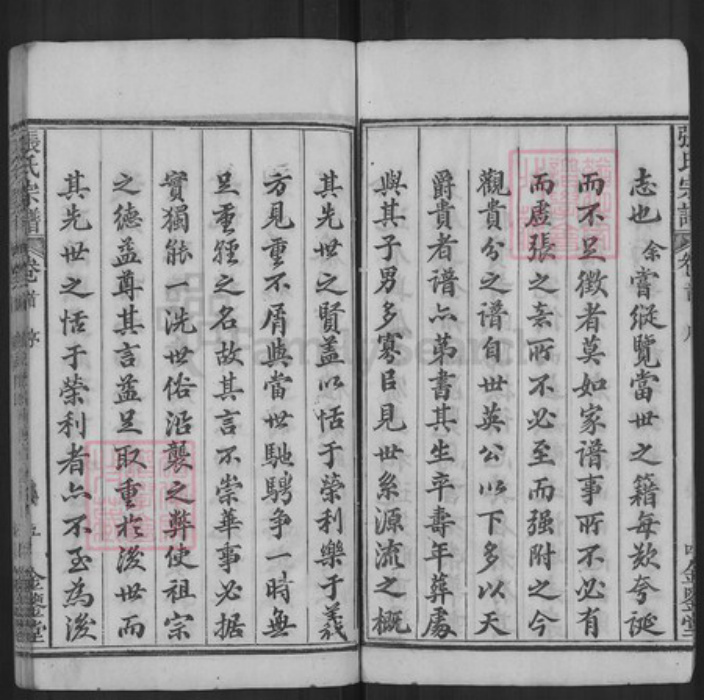 張氏宗譜 卷首
金鑒堂
志也余嘗縱覽當世之籍每歎夸誕
而不足徵者莫如家谱事所不必有
而虛張之意所不必至而强附之今
觀貴分之谱自世英公以下多以天
爵貴者谱亦第書其生卒壽年葬處
與其子男多寡臣見世系源流之概
其先世之賢盖以恬于榮利樂于義
方見重不屑與當世馳騁争一時無
足重輕之名故其言不崇華事必据
實獨能一洗世俗沿襲之弊使祖宗
之德益尊其言益足取重於後世而
其先世之恬于榮利者亦不至為後
張氏宗譜 卷首
金鑒堂
FamilySearch